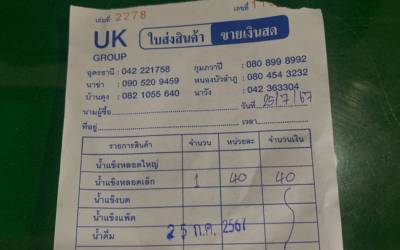 เล่มที่ 2278 เลขที่
UK ใบส่งสินค้า ขายเงินสด
GROUP
อุดรธานี : 042 221758 กุมภวาปี : 080 899 8992
นาข่า : 090 520 9459 หนองบัวลำภู : 080 454 3232
บ้านดุง : 082 1055 640 นาวัง : 042 363304
นามผู้ซื้อ วันที่ 25/7/67
ที่อยู่ เวลา
รายการสินค้า จำนวน หน่วยละ จำนวนเงิน
น้ำแข็งหลอดใหญ่
น้ำแข็งหลอดเล็ก 1 40 40
น้ำแข็งบด
น้ำแข็งแพ็ค
น้ำดื่ม 25 ก.ค. 2567